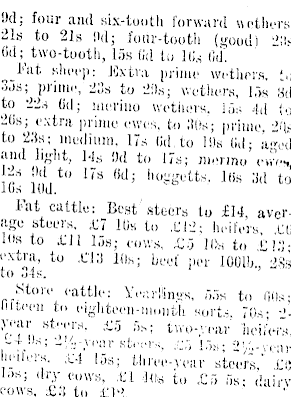 9d; four and six-tooth forward wethers
21s to 21s 9d; four-tooth (good) 23s
6d; two-tooth, 15s 6d to 16s 6d.
Fat sheep: Extra prime wethers, to
35s; prime, 23s to 29s; wethers, 15s 3d
to 22s 6d; merino wethers, 15s 4d to
26s; extra prime ewes, to 30s; prime, 20s
to 23s; medium, 17s 6d to 19s 6d; aged
and light, 14s 9d to 17s; merino ewes,
12s 9d to 17s 6d; hoggetts, 16s 3d to
16s 10d.
Fat cattle: Best steers to £14, aver-
age steers, £7 10s to £12; heifers, £6
10s to £11 15s; cows, £5 10s to £13;
extra, to £13 10s; beef per 100lb., 28s
to 34s.
Store cattle: Yearlings, 55s to 60s;
fifteen to eighteen-month sorts, 70s; 2-
year steers, £5 5s; two-year heifers,
£4 9s; 2½-year steers, £5 15s; 2½-year
heifers, £4 15s; three-year steers, £6
15s; dry cows, £1 10s to £5 5s; dairy
cows, £3 to £12